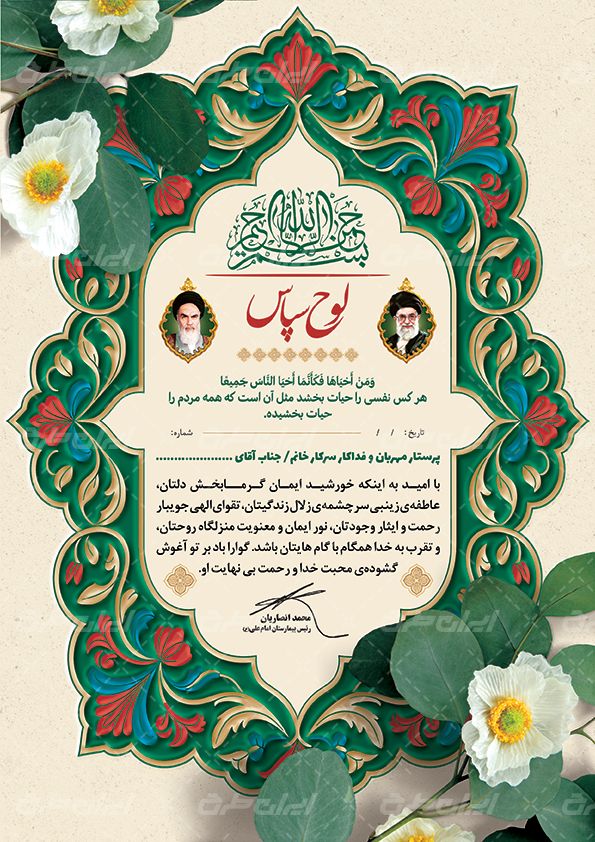 بسم الله الرحمن الرحیم
لوح سپاس
وَمَنْ أَحْيَاهَا فَكَأَنَّمَا أَحْيَا النَّاسَ جَمِيعًا
هر کس نفسی را حیات بخشد مثل آن است که همه مردم را
حیات بخشیده.
تاریخ: / / شماره:
پرستار مهربان و فداکار سرکار خانم/ جناب آقای ......................
با امید به اینکه خورشید ایمان گرمابخش دلتان،
عاطفه‌ی زینبی سرچشمه‌ی زلال زندگیتان، تقوای الهی جویبار
رحمت و ایثار وجودتان، نور ایمان و معنویت منزلگاه روحتان،
و تقرب به خدا همگام با گام هایتان باشد. گوارا باد بر تو آغوش
گشوده‌ی محبت خدا و رحمت بی نهایت او.
محمد انصاریان
رئیس بیمارستان امام علی(ع)
ایران طرح